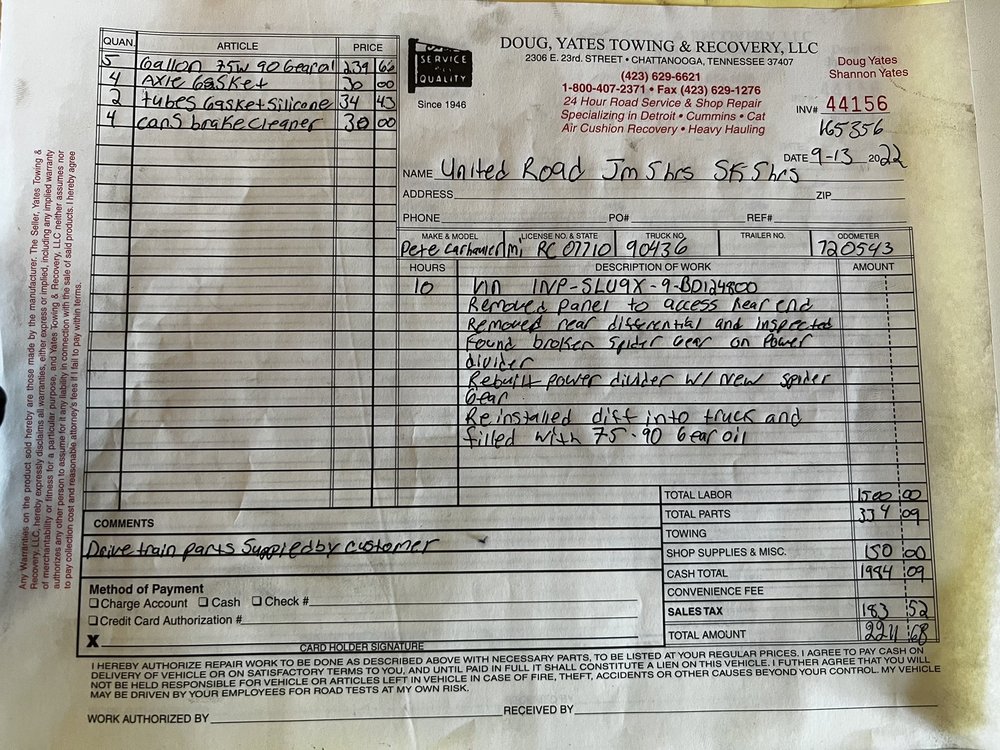 QUAN. ARTICLE PRICE
5 Gallon 75W 90 Gear oil 239 66
4 Axle Gasket 30 00
2 tubes Gasket Silicone 34 43
4 cans brake cleaner 30 00
SERVICE
QUALITY
Since 1946
DOUG, YATES TOWING & RECOVERY, LLC
2306 E. 23rd. STREET • CHATTANOOGA, TENNESSEE 37407
(423) 629-6621
1-800-407-2371 • Fax (423) 629-1276
24 Hour Road Service & Shop Repair
Specializing in Detroit • Cummins • Cat
Air Cushion Recovery • Heavy Hauling
Doug Yates
Shannon Yates
INV# 44156
165356
DATE 9-13 2022
NAME United Road Jm 5hrs SK 5hrs
ADDRESS ZIP
PHONE PO# REF#
MAKE & MODEL LICENSE NO. & STATE TRUCK NO. TRAILER NO. ODOMETER
Pete carhauler mi RC 07710 90436 720543
HOURS DESCRIPTION OF WORK AMOUNT
10 Vin 1NP-SLU9X-9-BD124800
Removed panel to access Rear end
Removed rear differential and inspected
Found broken Spider Gear on Power
divider
Rebuilt power divider w/ new spider
Gear
Reinstalled diff into truck and
filled with 75-90 Gear oil
TOTAL LABOR 1500 00
TOTAL PARTS 334 09
TOWING
SHOP SUPPLIES & MISC. 150 00
CASH TOTAL 1984 09
CONVENIENCE FEE
SALES TAX 183 52
TOTAL AMOUNT 2211 68
COMMENTS
Drive train parts Supplied by customer
Method of Payment
Charge Account Cash Check #
Credit Card Authorization #
X
CARD HOLDER SIGNATURE
I HEREBY AUTHORIZE REPAIR WORK TO BE DONE AS DESCRIBED ABOVE WITH NECESSARY PARTS, TO BE LISTED AT YOUR REGULAR PRICES. I AGREE TO PAY CASH ON
DELIVERY OF VEHICLE OR ON SATISFACTORY TERMS TO YOU, AND UNTIL PAID IN FULL IT SHALL CONSTITUTE A LIEN ON THIS VEHICLE. I FUTHER AGREE THAT YOU WILL
NOT BE HELD RESPONSIBLE FOR VEHICLE OR ARTICLES LEFT IN VEHICLE IN CASE OF FIRE, THEFT, ACCIDENTS OR OTHER CAUSES BEYOND YOUR CONTROL. MY VEHICLE
MAY BE DRIVEN BY YOUR EMPLOYEES FOR ROAD TESTS AT MY OWN RISK.
WORK AUTHORIZED BY RECEIVED BY
Any Warranties on the product sold hereby are those made by the manufacturer. The Seller, Yates Towing &
Recovery, LLC, hereby expressly disclaims all warranties, either express or implied, including any implied warranty
of merchantability or fitness for a particular purpose, and Yates Towing & Recovery, LLC neither assumes nor
authorizes any other person to assume for it any liability in connection with the sale of said products. I hereby agree
to pay collection cost and reasonable attorney's fees if I fail to pay within terms.